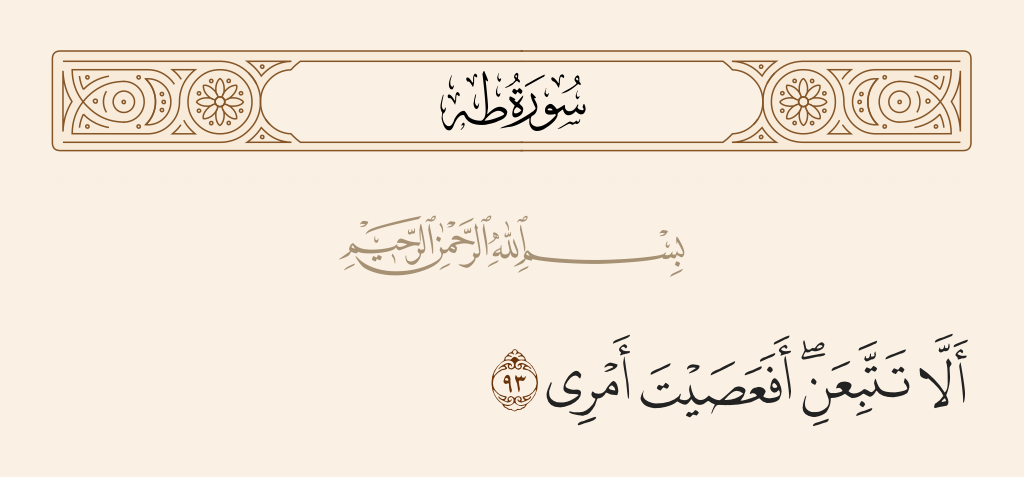 سُورَةُ طه
بِسْمِ ٱللَّهِ ٱلرَّحْمَٰنِ ٱلرَّحِيمِ
أَلَّا تَتَّبِعَنِ ۖ أَفَعَصَيْتَ أَمْرِى ٩٣